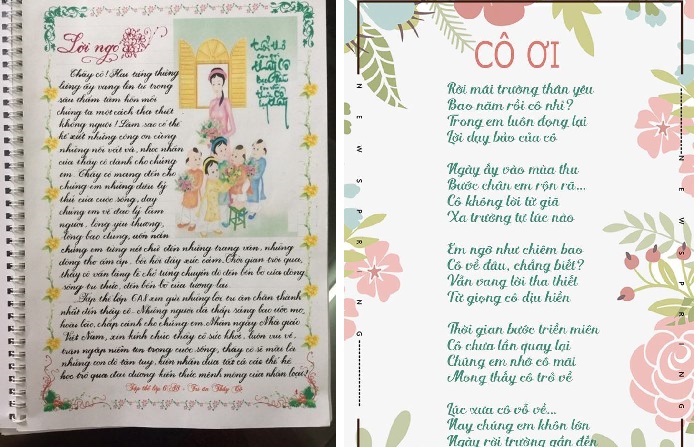 Lời ngỏ
Thầy cô! Hai tiếng thiêng
liêng ấy vang lên từ trong
sâu thẳm tâm hồn mỗi
chúng ta một cách tha thiết
không nguôi! Làm sao có thể
kể xiết những công ơn cùng
những nỗi vất vả, nhọc nhằn
của thầy cô dành cho chúng
em. Thầy cô mang đến cho
chúng em những điều lý
thú của cuộc sống, dạy
chúng em về đạo lý làm
người, lòng yêu thương,
lòng bao dung, uốn nắn
chúng em từng nét chữ đến những trang văn, những
dòng thơ ấm áp, bồi hồi đầy xúc cảm. Thời gian trôi qua,
thầy cô vẫn lặng lẽ chở từng chuyến đò đến bến bờ của dòng
sông tri thức, đến bến bờ của tương lai.
Tập thể lớp 6A8 xin gửi những lời tri ân chân thành
nhất đến thầy cô. Những người đã thắp sáng bao ước mơ,
hoài bão, chắp cánh cho chúng em. Nhân ngày Nhà giáo
Việt Nam, xin kính chúc thầy cô sức khỏe, luôn vui vẻ,
tràn ngập niềm tin trong cuộc sống, thầy cô sẽ mãi là
những con đò tận tụy, luôn nhẫn đưa tất cả các thế hệ
học trò qua đại dương kiến thức mênh mông của nhân loại!
Tập thể lớp 6A8 - Tri ân Thầy Cô
CÔ ƠI
Rời mái trường thân yêu
Bao năm rồi cô nhỉ?
Trong em luôn đọng lại
Lời dạy bảo của cô
Ngày ấy vào mùa thu
Bước chân em rộn rã...
Cô không lời từ giã
Xa trường tự lúc nào
Em ngỡ như chiêm bao
Cô về đâu, chẳng biết?
Vẫn vang lời tha thiết
Từ giọng cô dịu hiền
Thời gian bước triền miên
Cô chưa lần quay lại
Chúng em nhớ cô mãi
Mong thấy cô trở về
Lúc xưa cô vỗ về...
Nay chúng em khôn lớn
Ngày rời trường gần đến
NEWSPRING
NEWSPRING